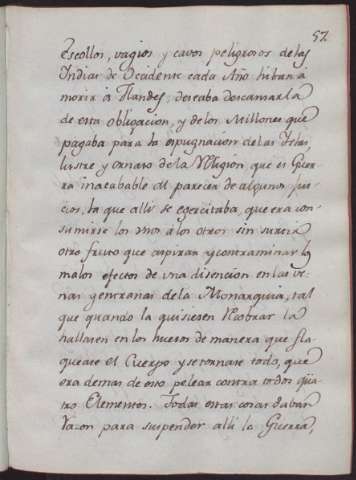 52
Escollos, vagios y cavos peligrosos de las
Indias de Ocidente cada Año hiban a
morir à Flandes; deseaba descansarla
de esta obligacion, y de los Millones que
pagaba para la expugnacion de las Islas,
lustre y ornato de la Religion, que es Guer-
ra inacabable al parecer de algunos Jui-
cios, la que alli se egercitaba, que era con-
sumirse los unos à los otros sin
otro fruto que aspirar y contraminar los
malos efectos de una disencion en las ve-
nas y entrañas de la Monarquia, tal
que quando la quisiesen recobrar la
hallasen en los huesos de manera que fla-
quease el Cuerpo y se tornase todo, que
era demas de esto pelear contra todos qüa-
tro Elementos. Todas estas cosas daban
razon para suspender alli la Guerra,